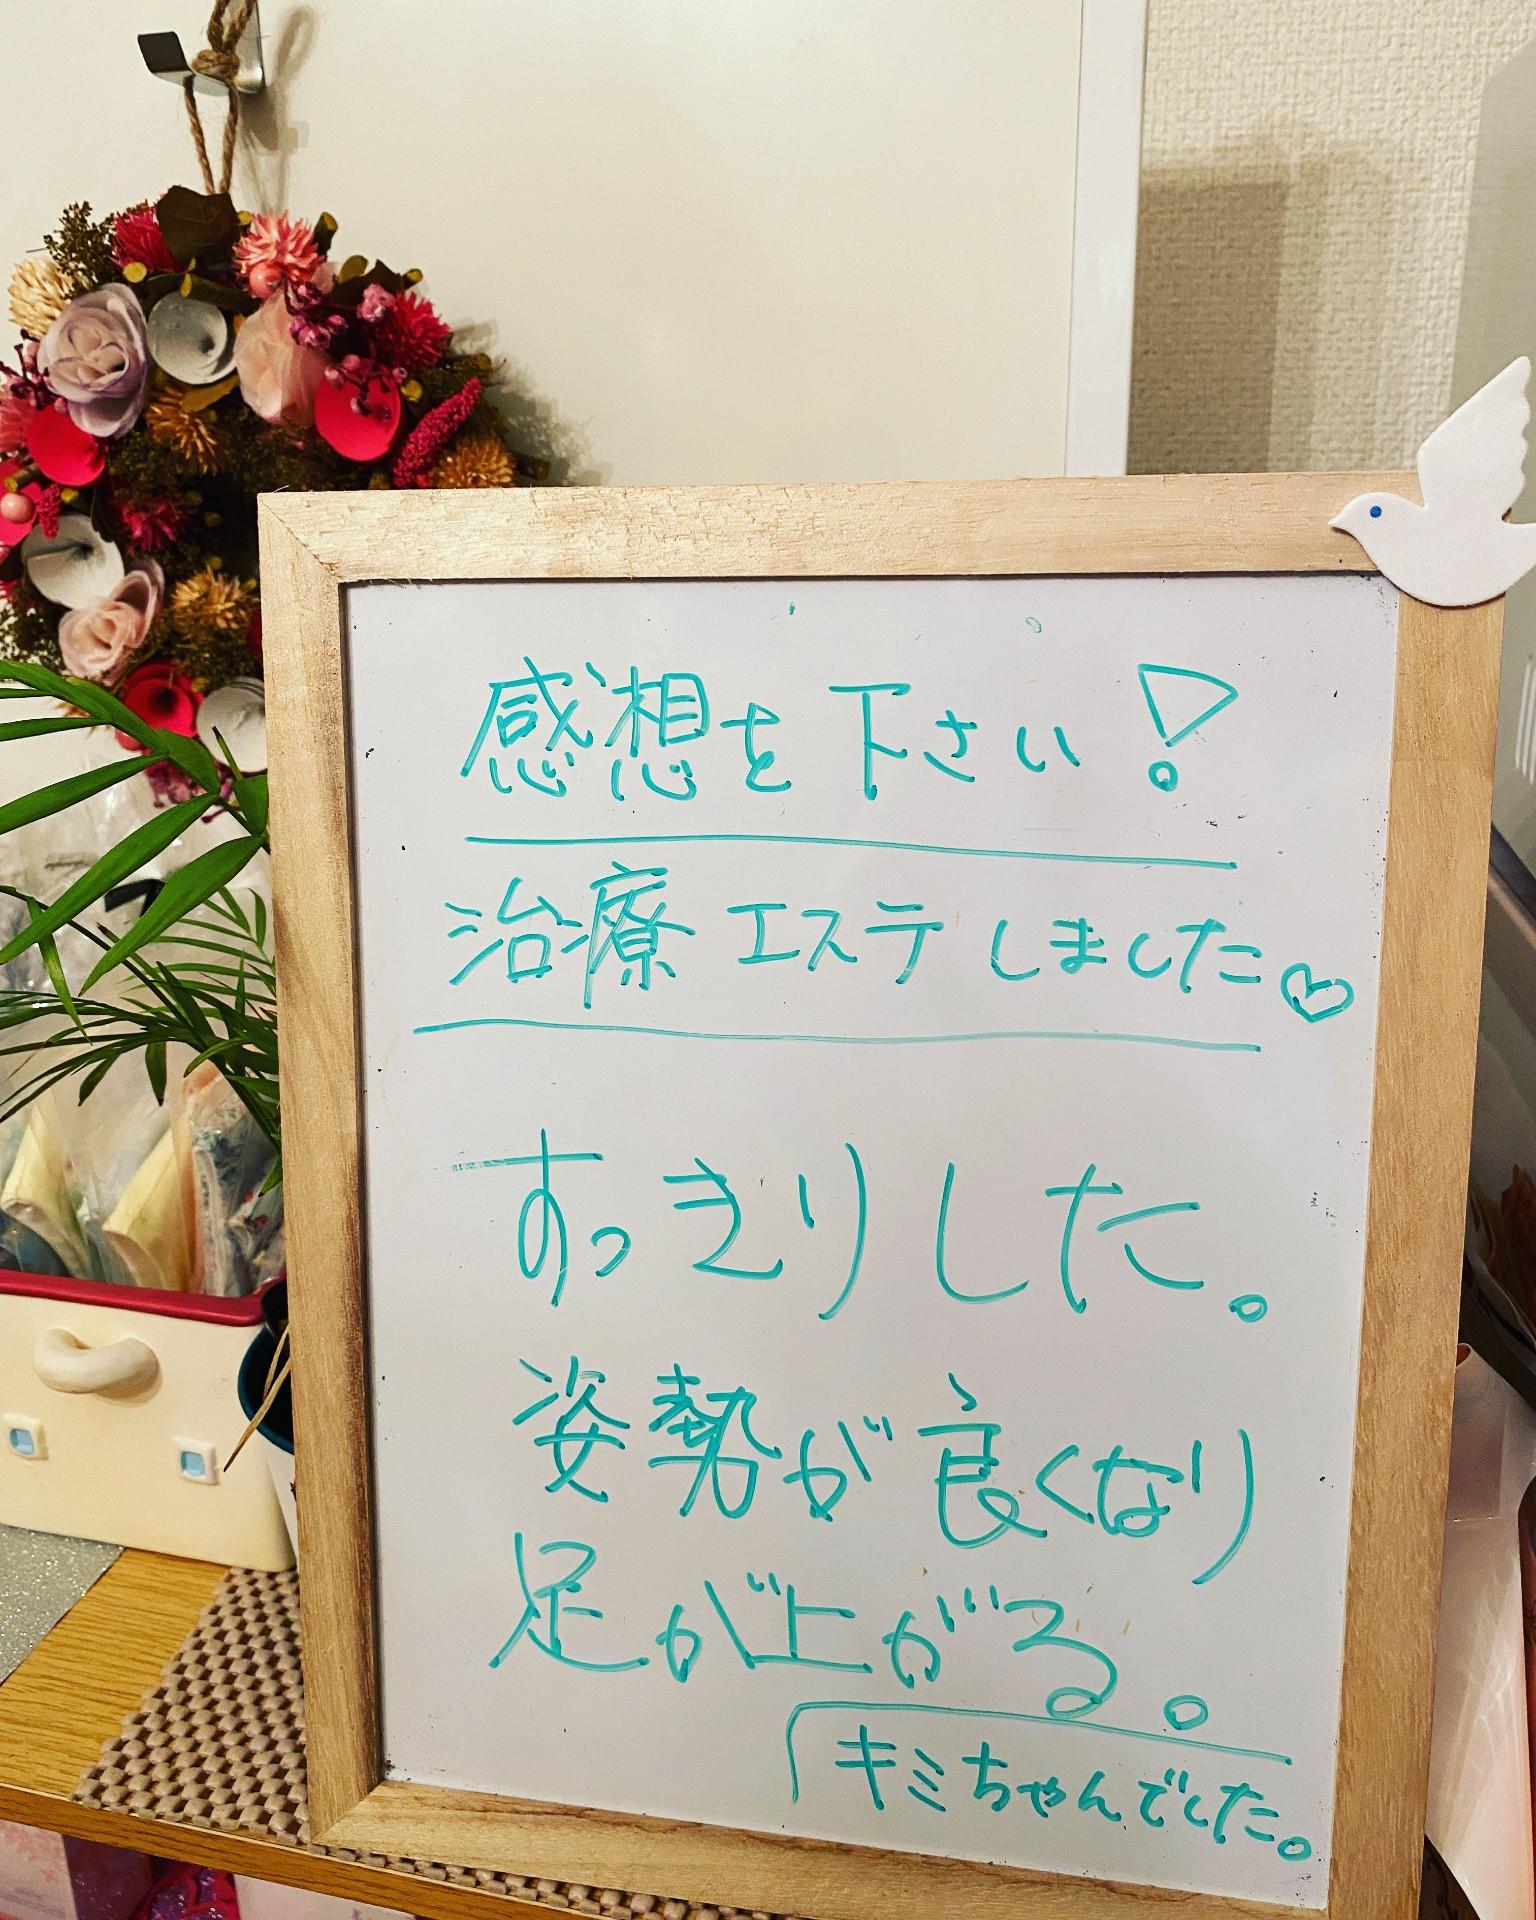 感想を下さい!
治療エステしました♡
すっきりした。
姿勢が良くなり
足が上がる。
キミちゃんでした。